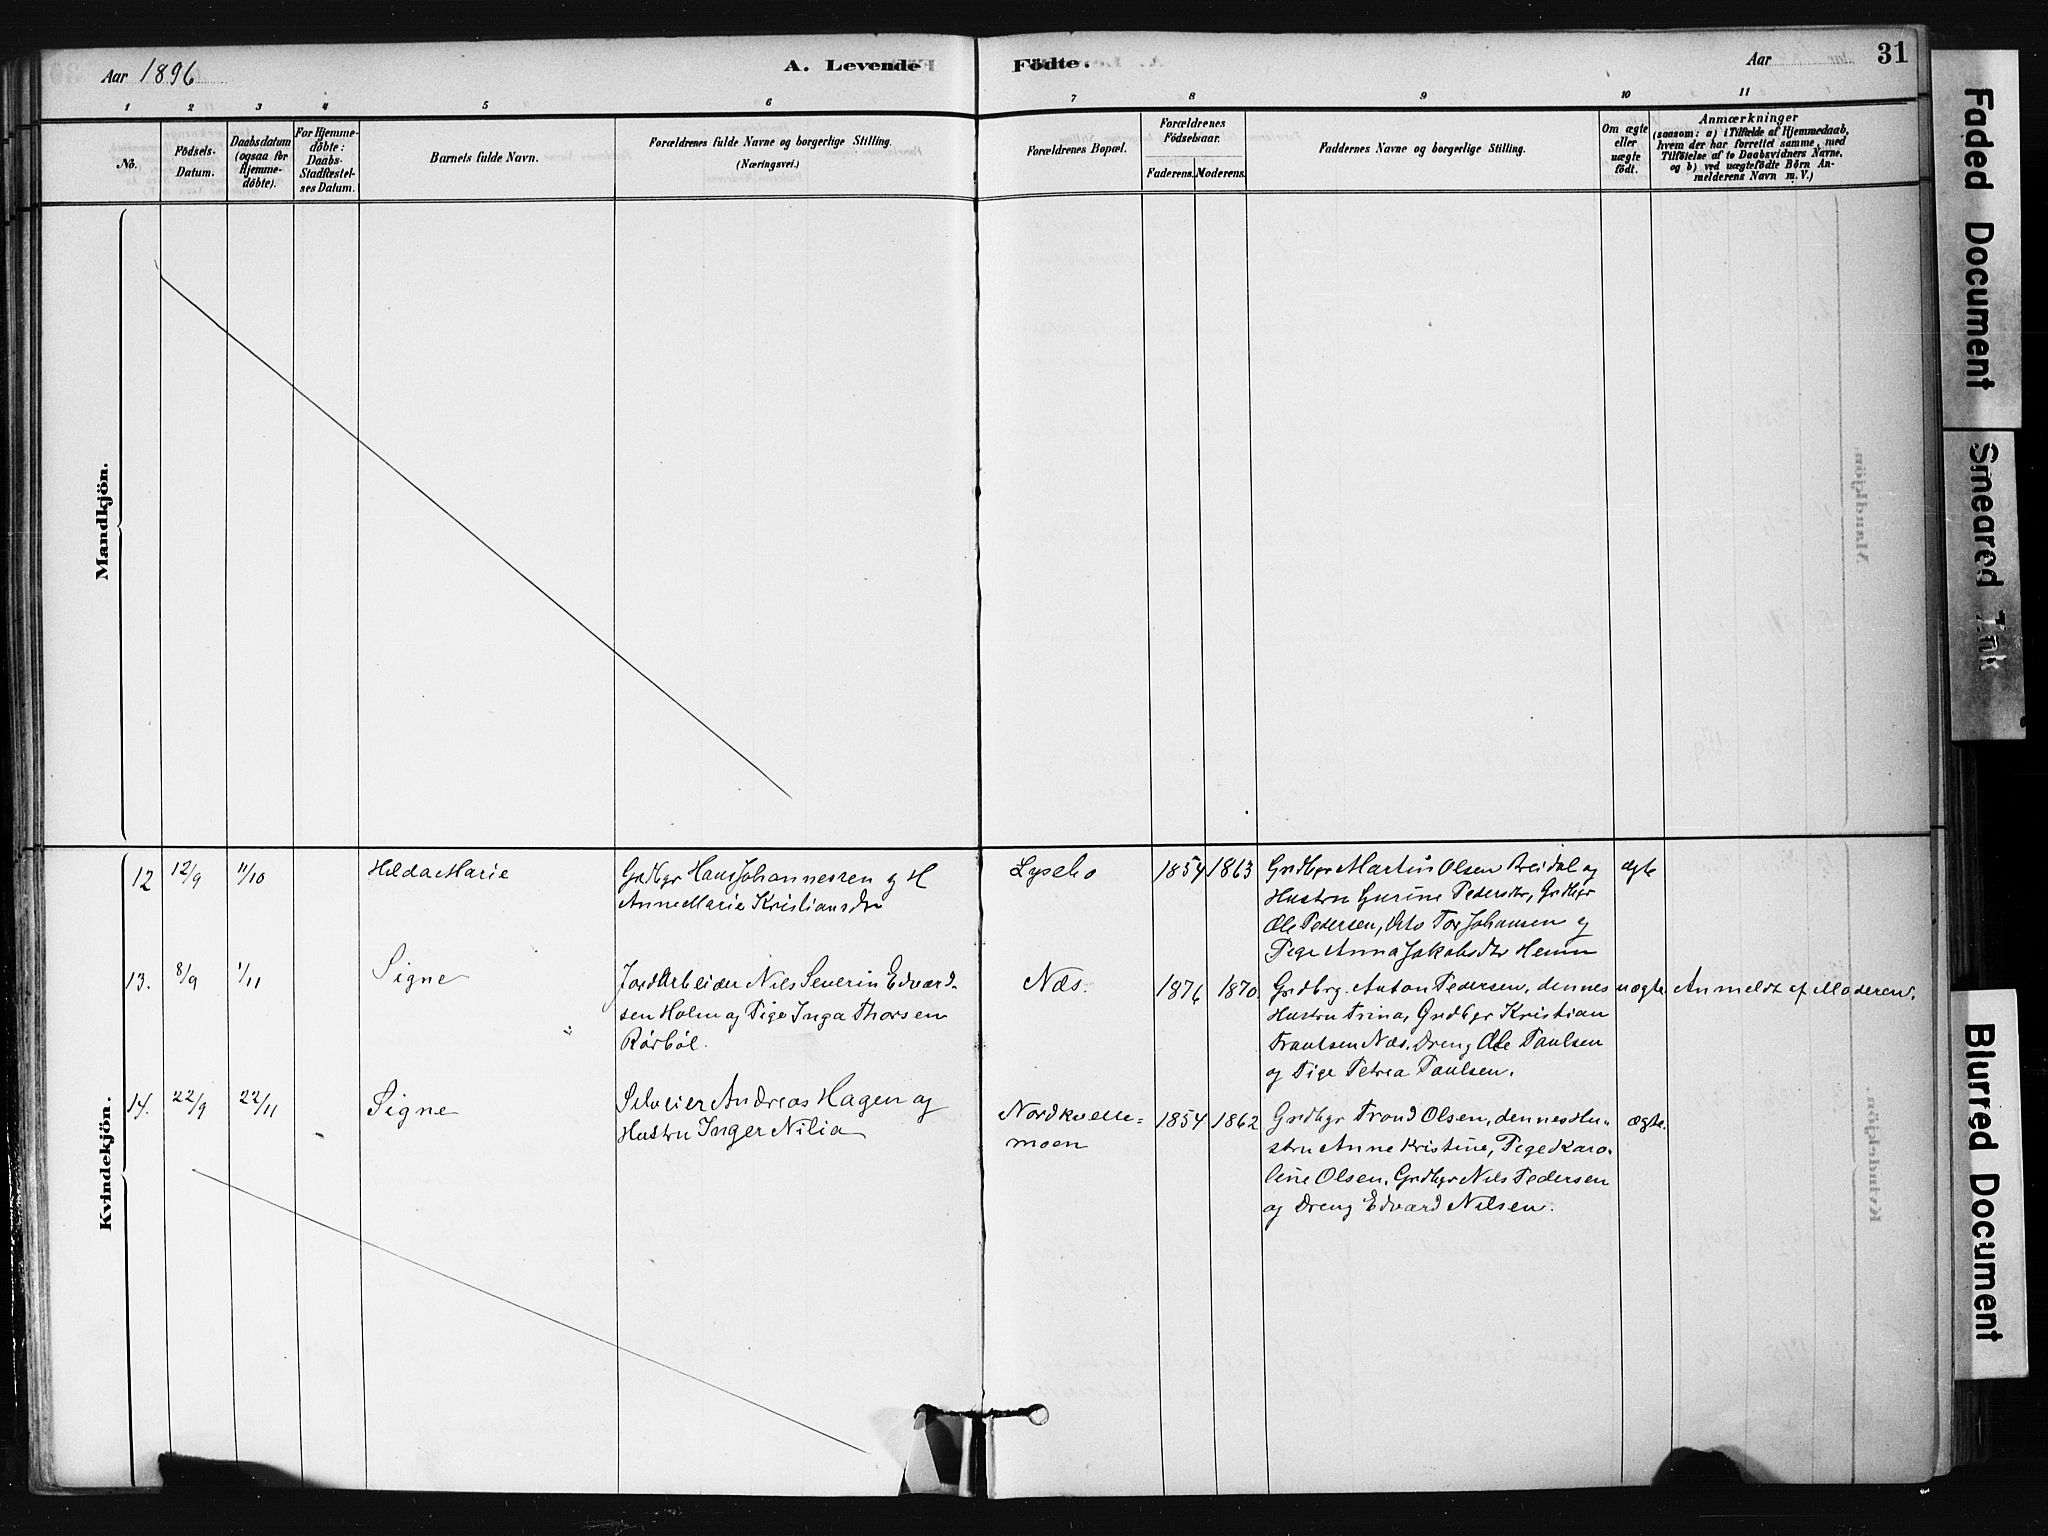 Aar 1896
A. Levende
Födte.
Aar
31
1 2 3 4 5 6 7 8 9 10 11
No.
Födsels-
Datum.
Daabsdatum
(ogsaa for
Hjemme-
döbte).
For Hjemme-
döbte:
Daabs-
Stadfæstel-
ses Datum.
Barnets fulde Navn.
Forældrenes fulde Navne og borgerlige Stilling.
(Næringsvei.)
Forældrenes Bopæl.
Forældrenes
Födselsaar.
Faderens. Moderens.
Faddernes Navne og borgerlige Stilling.
Om ægte
eller
uægte
födt.
Anmærkninger
(saasom: a) i Tilfælde af Hjemmedaab,
hvem der har forrettet samme, med
Tilföielse af to Daabsvidners Navne,
og b) ved uægtefödte Börn An-
melderens Navn m. V.)
Mandkjön.
Kvindekjön.
12 12/9 11/10 Hilda Marie
Grdbgr Hans Johannessen og H
Anne Marie Kristiansdtr
Lysebo 1854 1863
Grdbgr Martin Olsen Breidal og
Hustru Gurine Pedersdtr, Grdbgr
Ole Pedersen, Tor Johansen og
Pige Anna Jakobsdtr Hemm
ægte
13. 8/9 1/11 Signe
Jordarbeider Nils Severin Edvard-
sen Holm og Pige Inga Thorsen
Rörböl.
Næs. 1876 1870.
Grdbrg. Anton Pedersen, dennes
Hustru Trina, Grdbgr Kristian
Frantsen Næs. Dreng Ole Paulsen
og Pige Petrea Paulsen.
uægte Anmeldt af Moderen.
14. 22/9 22/11 Signe
Selveier Andreas Hagen og
Hustru Inger Nilia
Nordkvelle=
moen
1854 1862
Grdbgr Trond Olsen, dennes Hu-
stru Anne Kristine, Pige Karo-
line Olsen, Grdbgr Nils Pedersen
og Dreng Edvard Nilsen.
ægte.
Faded Document
Smeared Ink
Blurred Document